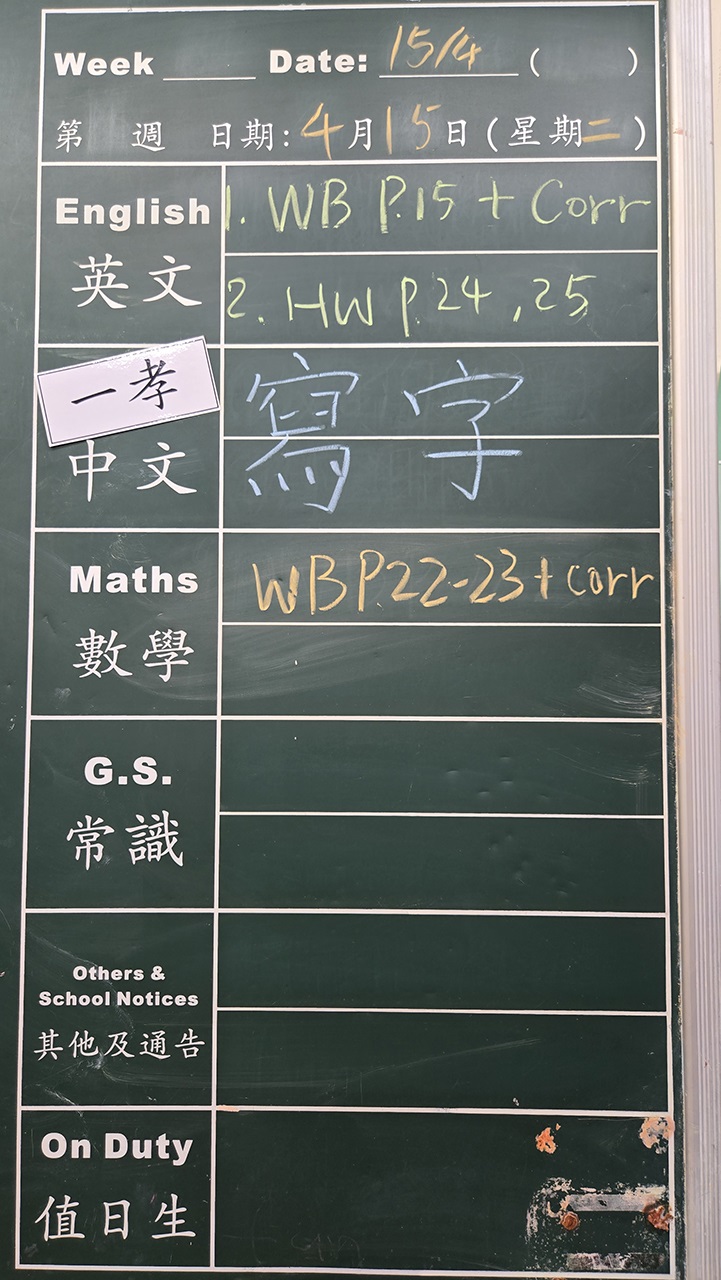 Week ____ Date: 15/4 (    )
第 週 日期: 4月15日 (星期二)
English 1. WB P.15 + Corr
英文 2. HW P.24, 25
一孝
中文 寫字
Maths WB P.22-23 + corr
數學
G.S.
常識
Others &
School Notices
其他及通告
On Duty
值日生